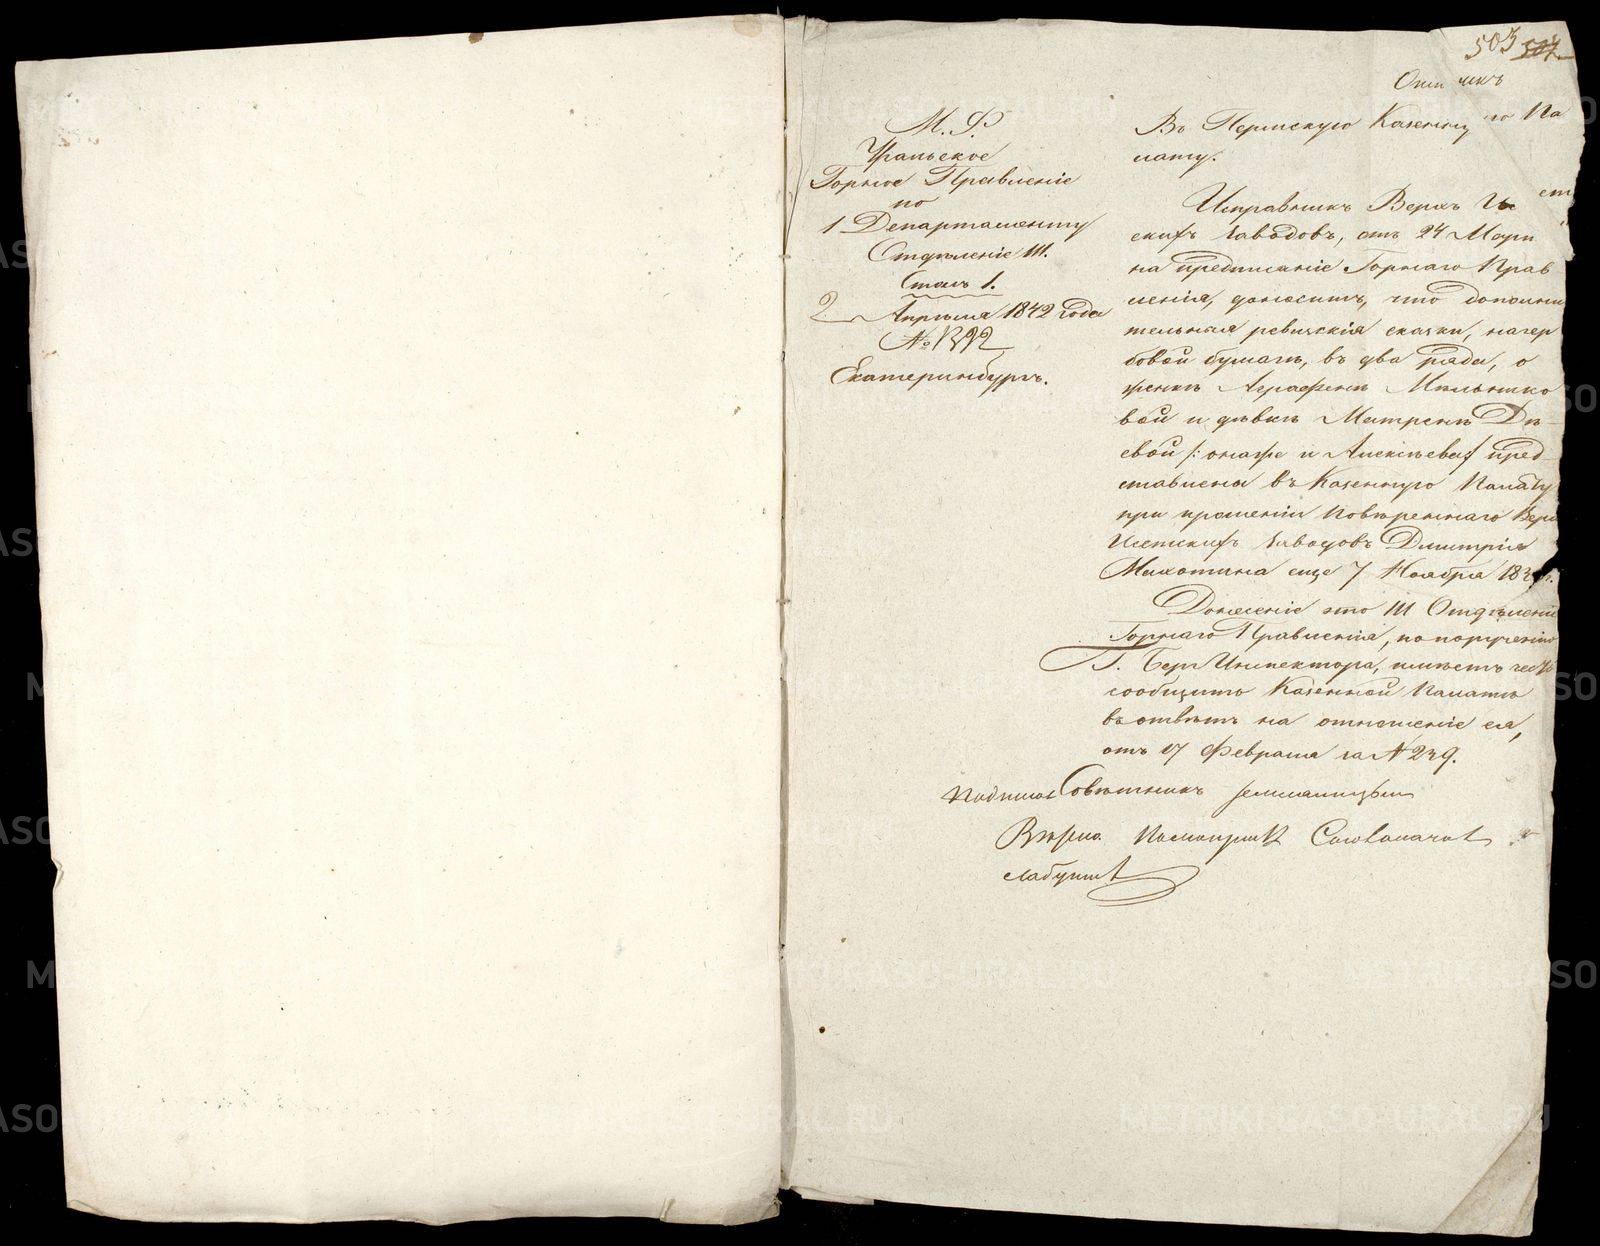 503 504
М. Ф.
Уральское
Горное Правленіе
по
1 Департаменту
Отдѣленіе III.
Столъ 1.
2 Апрѣля 1842 года
№ 1392
Екатеринбургъ.
Въ Пермскую Казенную Па
лату.
Исправникъ Верхъ Исет
скихъ заводовъ, отъ 24 Марта
на предписаніе Горнаго Прав
ленія, доноситъ, что дополни
тельныя ревижскія сказки, на гер
бовой бумагѣ, въ два ряда, о
женкѣ Аграфенѣ Мѣльнико
вой и дѣвкѣ Матренѣ Дѣ
евой /: онаже и Алексѣева :/ пред
ставлены въ Казенную Палату
при прошеніи повѣреннаго Верхъ
Исетскихъ заводовъ Дмитрія
Махотина еще 7 Ноября 183
Донесеніе это III Отдѣленіе
Горнаго Правленія, по порученію
Г. Бергъ Инспектора, имѣетъ честь
сообщить Казенной Палатѣ
въ отвѣтъ на отношеніе ея,
отъ 17 Февраля за № 239.
Подписалъ Совѣтникъ
Вѣрно
METRIKI.GASO-URAL.RU